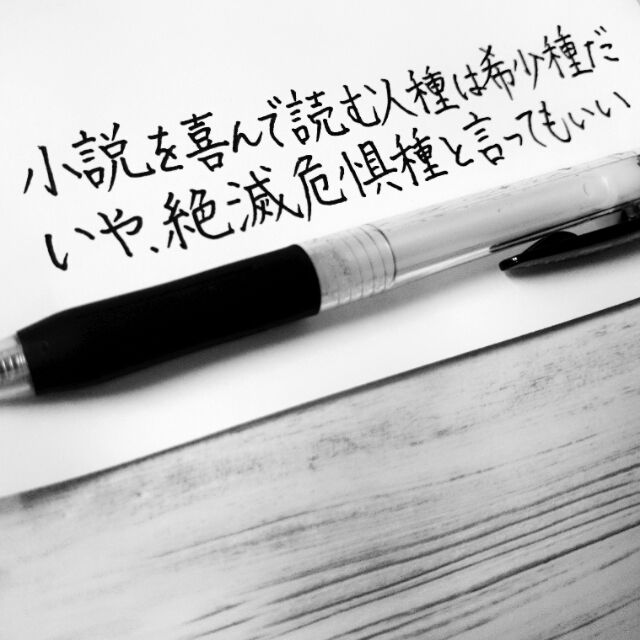 小説を喜んで読む人種は希少種だ
いや、絶滅危惧種と言ってもいい